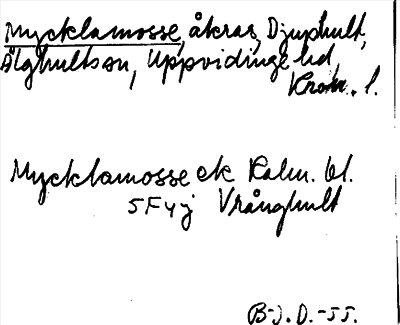 Mycklamosse, åkrar, Djuphult,
Älghults sn, Uppvidinge hd,
Kron. l.
Mycklamosse ek Kalm. bl.
5F4j Vrånghult
B-J. D. -55.